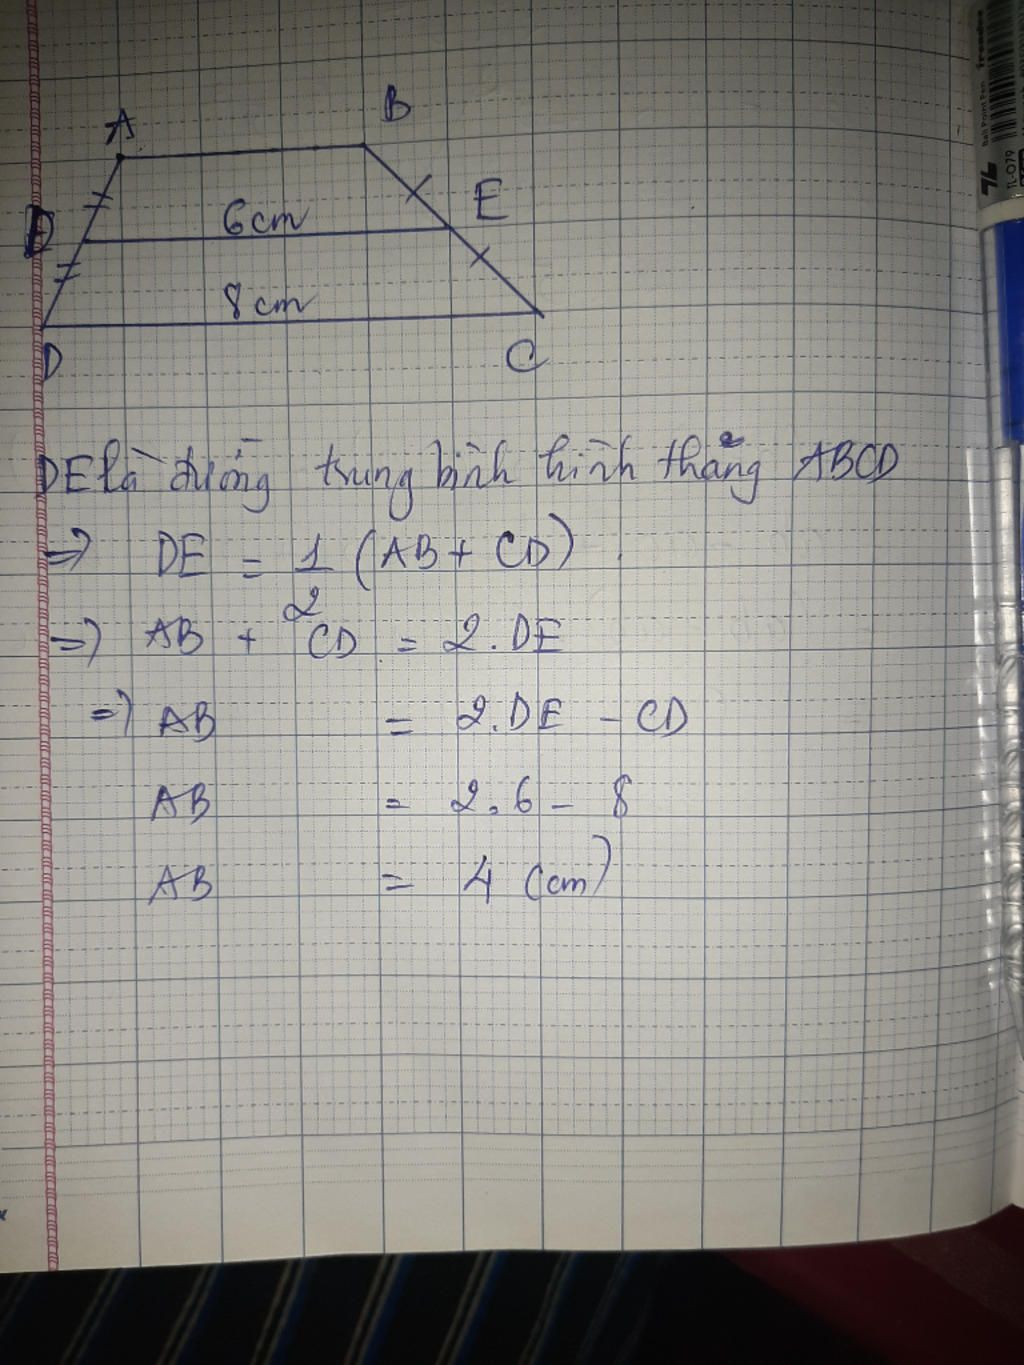 A B
E
6cm
8cm
D C
DE là đường trung bình hình thẳng ABCD
=> DE = 1/2 (AB + CD)
=> AB + CD = 2.DE
=> AB = 2.DE - CD
AB = 2.6 - 8
AB = 4 (cm)
TL-079
Ball Point Pen